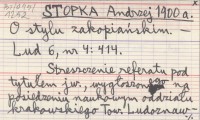 STOPKA Andrzej 1900 a.
O stylu zakopiańskim —
Lud 6, nr 4: 414.
Streszczenie referatu pod
tytułem jw., wygłoszonego na
posiedzeniu naukowem oddziału
krakowskiego Tow. Ludoznaw-